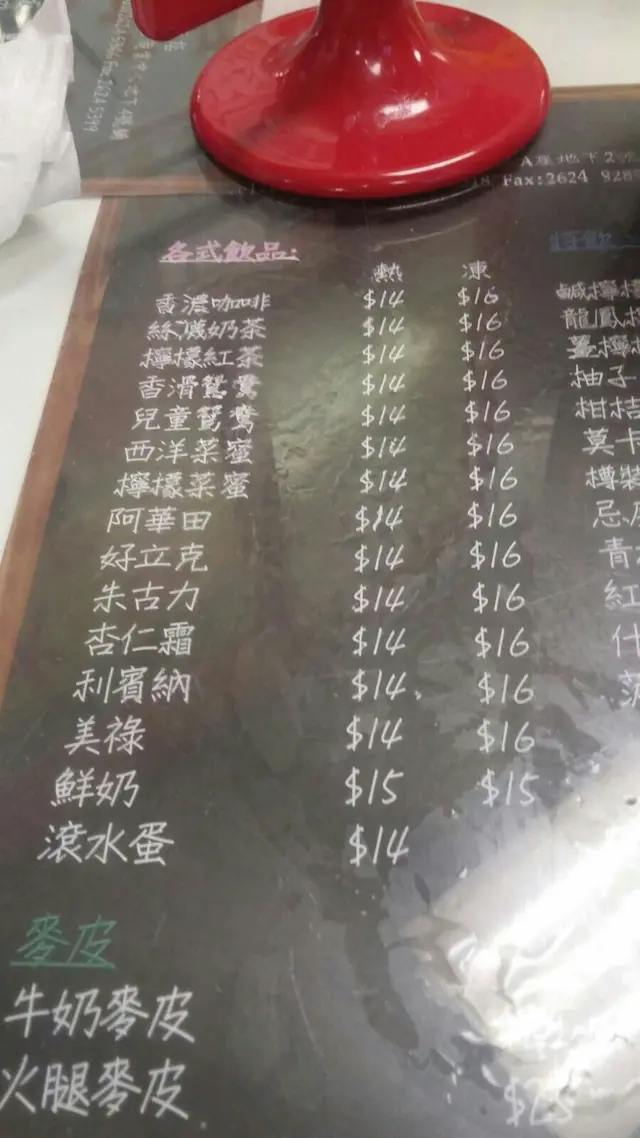 A座地下2號
Fax:2624 928
各式飲品:
熱 凍
香濃咖啡 $14 $16
絲襪奶茶 $14 $16
檸檬紅茶 $14 $16
香滑鴛鴦 $14 $16
兒童鴛鴦 $14 $16
西洋菜蜜 $14 $16
檸檬菜蜜 $14 $16
阿華田 $14 $16
好立克 $14 $16
朱古力 $14 $16
杏仁霜 $14 $16
利賓納 $14 $16
美祿 $14 $16
鮮奶 $15 $15
滾水蛋 $14
麥皮
牛奶麥皮
火腿麥皮
特飲
鹹檸檬
龍鳳檸
薑檸檬
柚子
柑桔
莫卡
樽裝
忌
青
紅
什